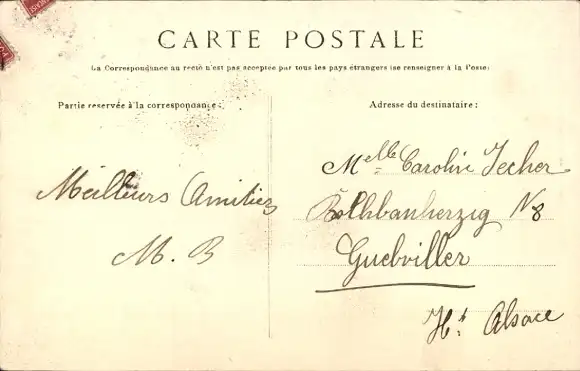 CARTE POSTALE
La Correspondance au recto n'est pas acceptée par tous les pays étrangers (se renseigner à la Poste)
Partie réservée à la correspondance:
Adresse du destinataire:
Meilleurs Amitiez
M. B
Melle Carolin Jecher
N 8
Guebviller
Ht Alsace